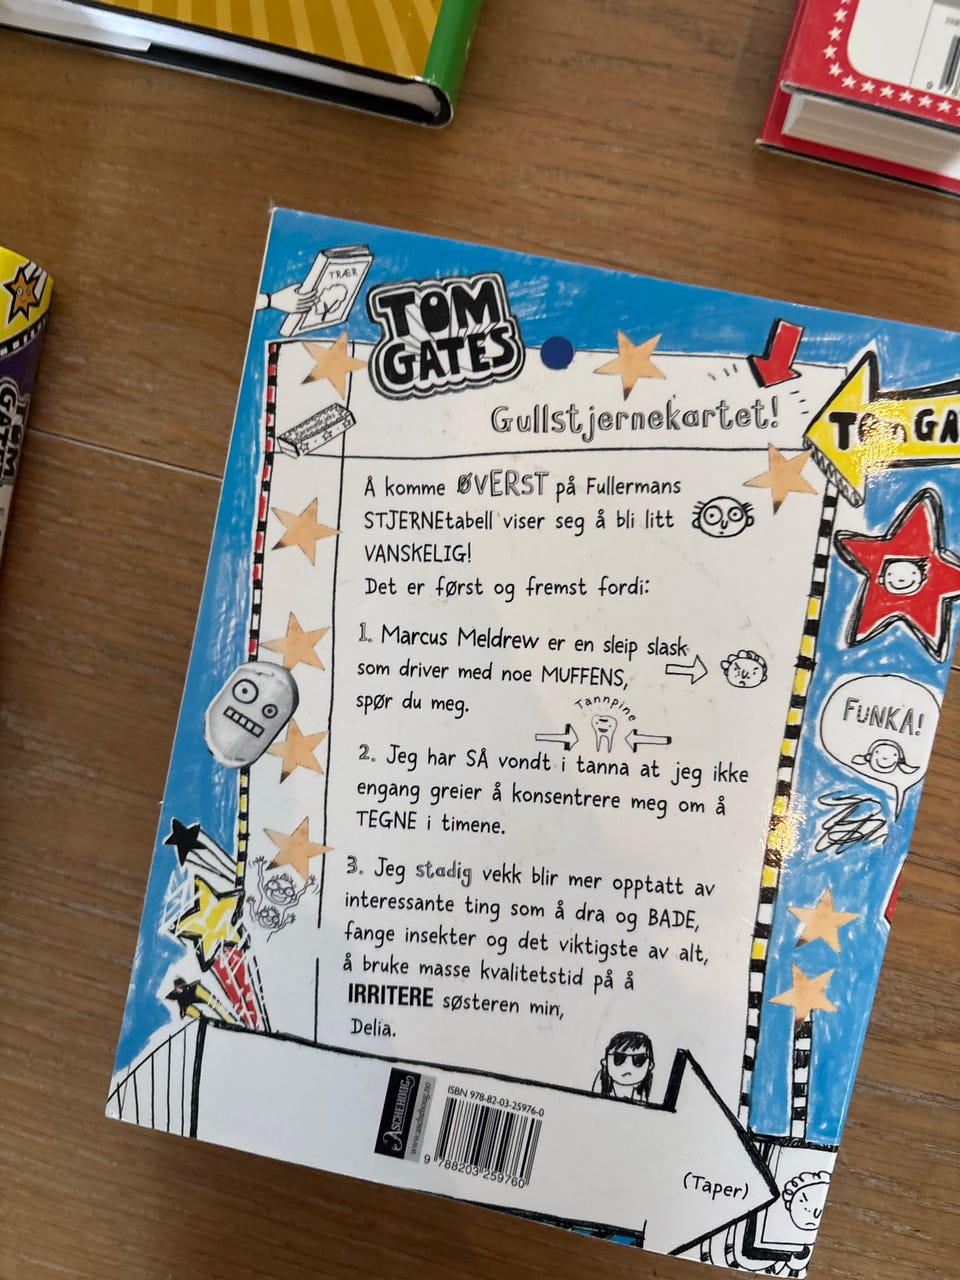 TRÆR
TOM
GATES
Gullstjernekartet!
TOM GA
Å komme ØVERST på Fullermans
STJERNEtabell viser seg å bli litt
VANSKELIG!
Det er først og fremst fordi:
1. Marcus Meldrew er en sleip slask
som driver med noe MUFFENS,
spør du meg.
Tannpine
FUNKA!
2. Jeg har SÅ vondt i tanna at jeg ikke
engang greier å konsentrere meg om å
TEGNE i timene.
3. Jeg stadig vekk blir mer opptatt av
interessante ting som å dra og BADE,
fange insekter og det viktigste av alt,
å bruke masse kvalitetstid på å
IRRITERE søsteren min,
Delia.
ASCHEHOUG
www.aschehoug.no
ISBN 978-82-03-25976-0
9 788203 259760
(Taper)
TOM
GATES